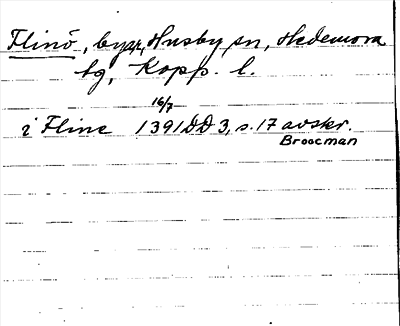 Flinö, byar, Husby sn, Hedemora
tg, Kopp. l.
16/7
i Fline 1391 DD 3, s. 17 avskr.
Broocman